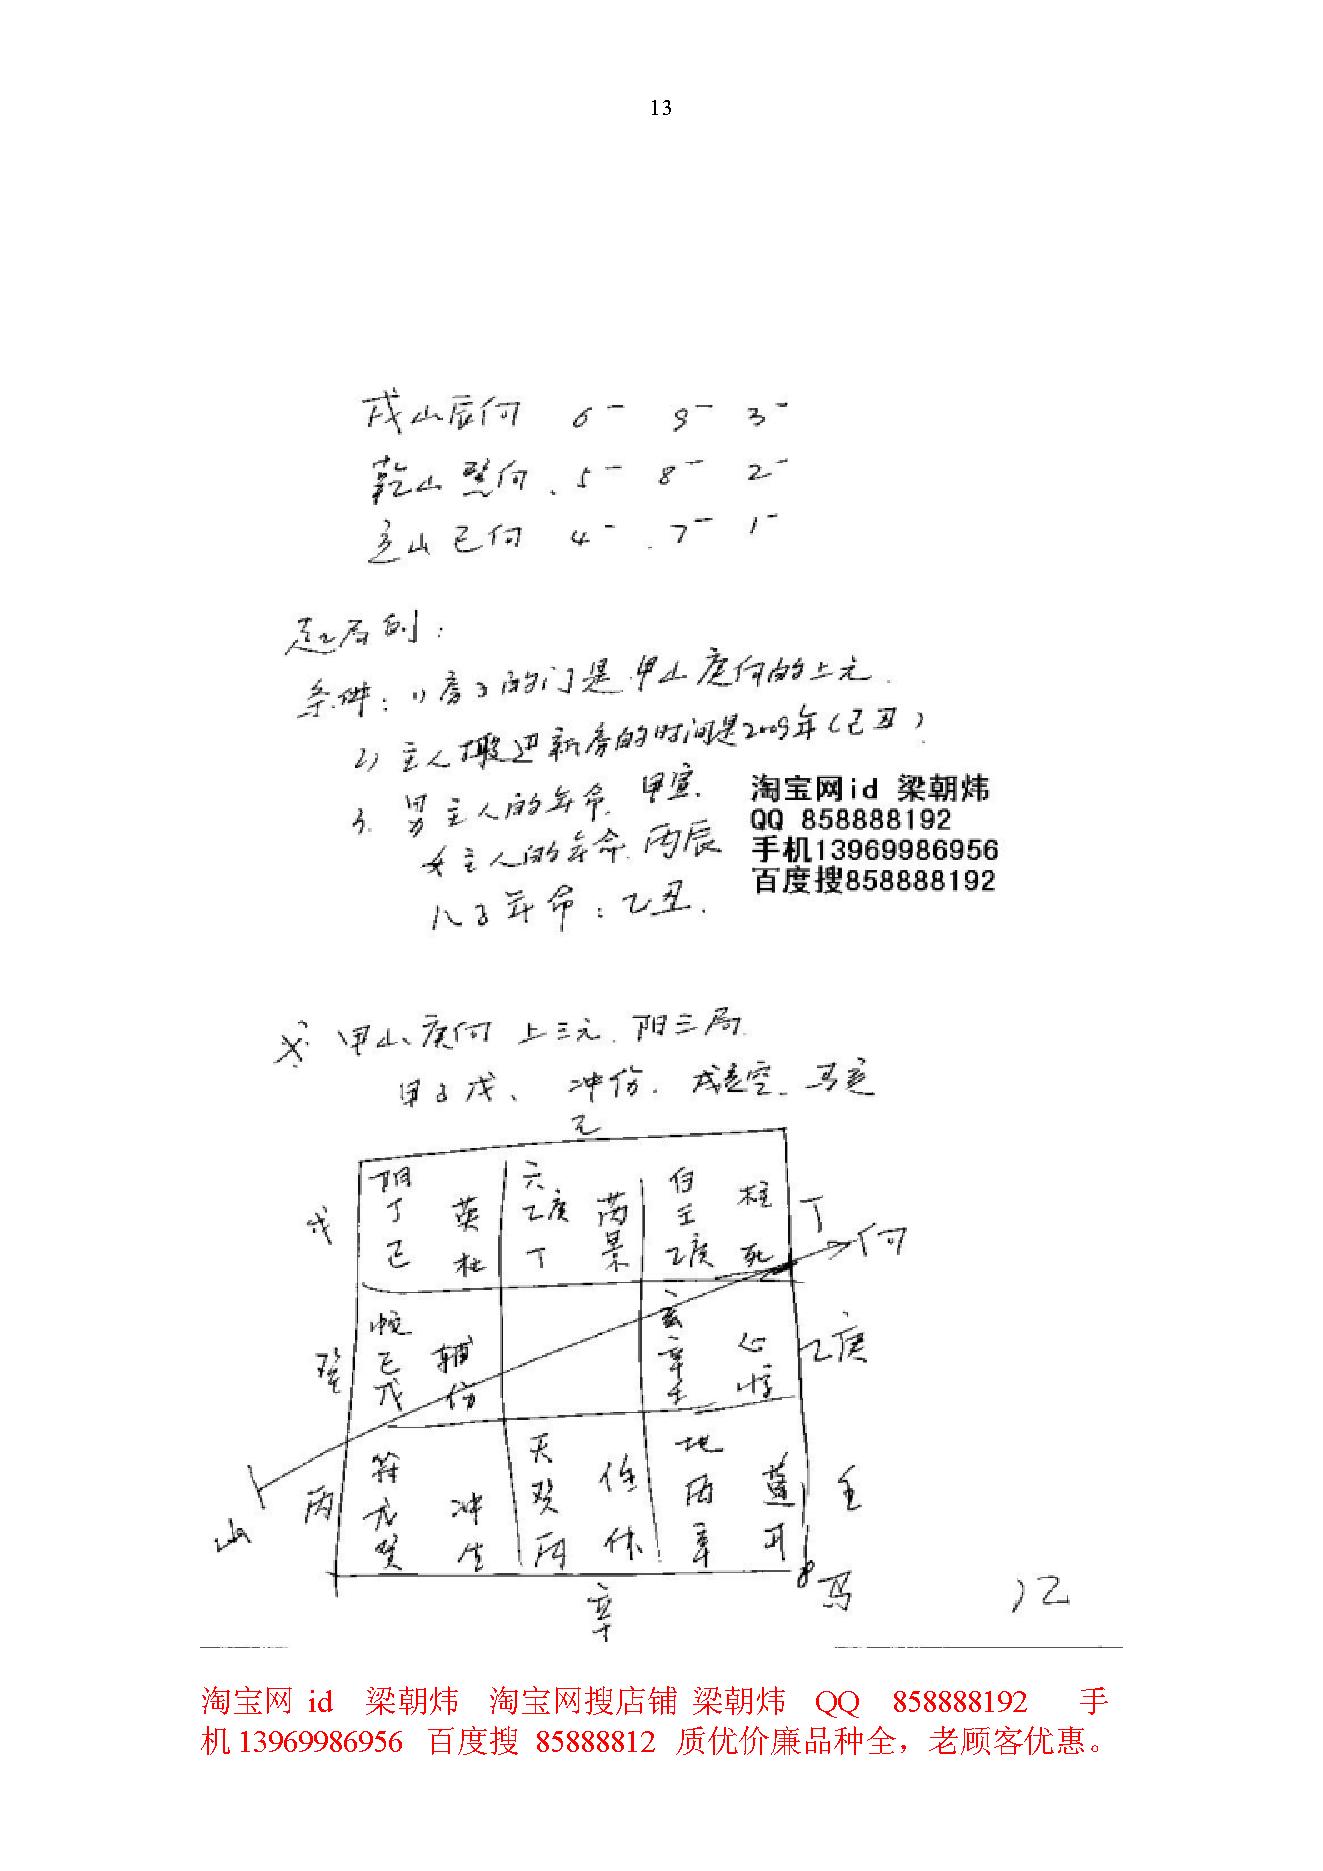 13
戌山辰向 6- 9- 3-
乾山巽向 5- 8- 2-
亥山巳向 4- 7- 1-
起局例：
条件：1）房子的门是甲山庚向的上元.
2）主人搬迎新房的时间是2009年（己丑）
3. 男主人的年命. 甲寅.
女主人的年命. 丙辰
儿子年命：乙丑.
淘宝网id 梁朝炜
QQ 858888192
手机13969986956
百度搜858888192
甲山庚向 上三元. 阳三局.
甲子戊、 冲伤. 戌亥空. 马亥
己
阳 六 白 柱
丁 英 乙庚 芮 壬
己 杜 丁 景 乙庚 死
戊 丁 向
己 辅 辛 心
戊 伤 壬
癸 乙庚
符 天 地
冲 癸 任 丙 蓬
癸 生 丙 休 辛 开
山 丙 壬
辛 马
12
淘宝网 id 梁朝炜 淘宝网搜店铺 梁朝炜 QQ 858888192 手
机 13969986956 百度搜 85888812 质优价廉品种全，老顾客优惠。